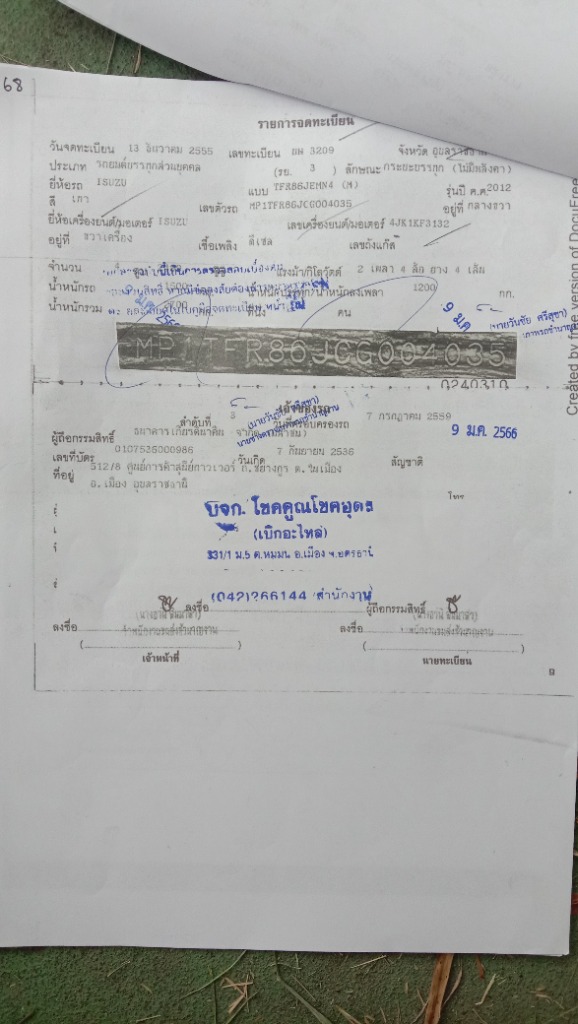 68
รายการจดทะเบียน
วันจดทะเบียน 13 ธันวาคม 2555 เลขทะเบียน ผพ 3209 จังหวัด อุบลราชธานี
ประเภท รถยนต์บรรทุกส่วนบุคคล (รย. 3 ) ลักษณะ กระบะบรรทุก (ไม่มีหลังคา)
ยี่ห้อรถ ISUZU แบบ TFR86JEMN4 (M) รุ่นปี ค.ศ.2012
สี เทา เลขตัวรถ MP1TFR86JCG004035 อยู่ที่ กลางขวา
ยี่ห้อเครื่องยนต์/มอเตอร์ ISUZU เลขเครื่องยนต์/มอเตอร์ 4JK1KF3132
อยู่ที่ ขวาเครื่อง เชื้อเพลิง ดีเซล เลขถังแก๊ส
จำนวน แรงม้า/กิโลวัตต์ 2 เพลา 4 ล้อ ยาง 4 เส้น
น้ำหนักรถ น้ำหนักบรรทุก/น้ำหนักลงเพลา 1200 กก.
น้ำหนักรวม ที่นั่ง คน
9 ม.ค.
(นายวันชัย ศรีสุชา)
MP1TFR86JCG004035
0240310
เจ้าของรถ
ลำดับที่ 3 วันที่ครอบครองรถ 7 กรกฎาคม 2559
9 ม.ค. 2566
ผู้ถือกรรมสิทธิ์ ธนาคารเกียรตินาคิน จำกัด (มหาชน)
เลขที่บัตร 0107536000986 วันเกิด 7 กันยายน 2536 สัญชาติ
ที่อยู่ 512/8 ศูนย์การค้าสุนีย์ทาวเวอร์ ถ.ชยางกูร ต.ในเมือง
อ.เมือง อุบลราชธานี
โทร
บจก. โชคคูณโชคอุดร
(เบิกอะไหล่)
331/1 ม.5 ต.หมูม่น อ.เมือง จ.อุดรธานี
(042)266144 สำนักงาน
ลงชื่อ ผู้ถือกรรมสิทธิ์
ลงชื่อ ลงชื่อ
เจ้าหน้าที่ นายทะเบียน
Created by free version of DocuFree